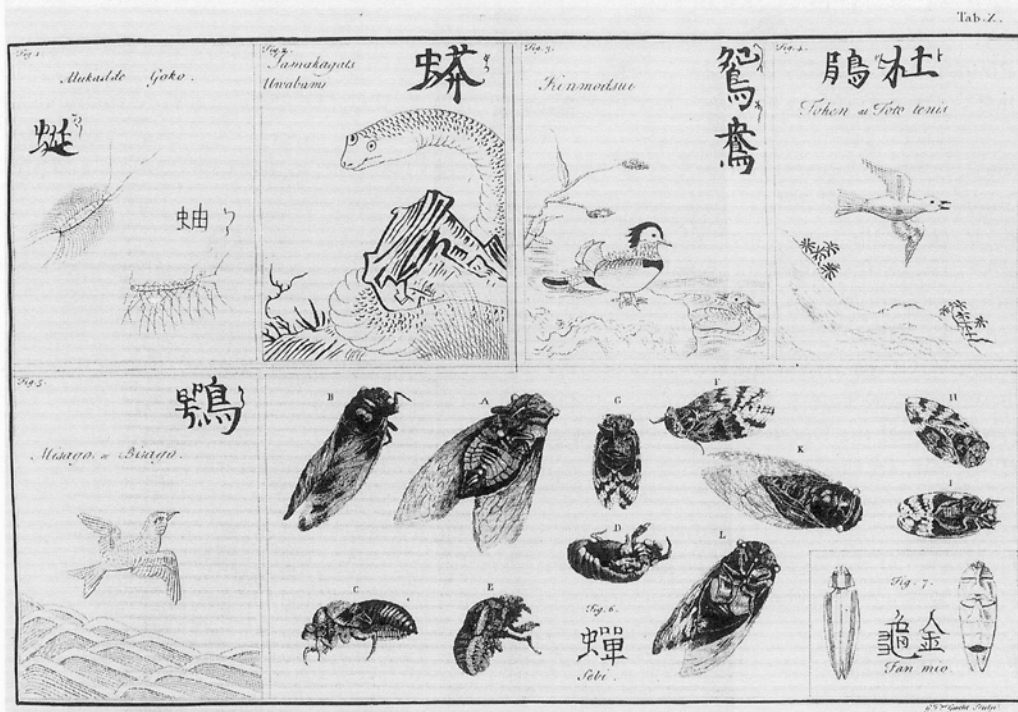 Tab. X.
Fig. 1.
Mukadde Goko.
蜒
蚰
Fig. 2.
Jamakagats
Uwabami
蟒
Fig. 3.
Kinmodsui
鴛鴦
Fig. 4.
杜鵑
Token
Fig. 5.
鶚
Misago. Bisago.
B
A
G
F
K
H
I
D
L
C
E
Fig. 6.
蟬
Sebi.
Fig. 7.
金龜
Fan mio.